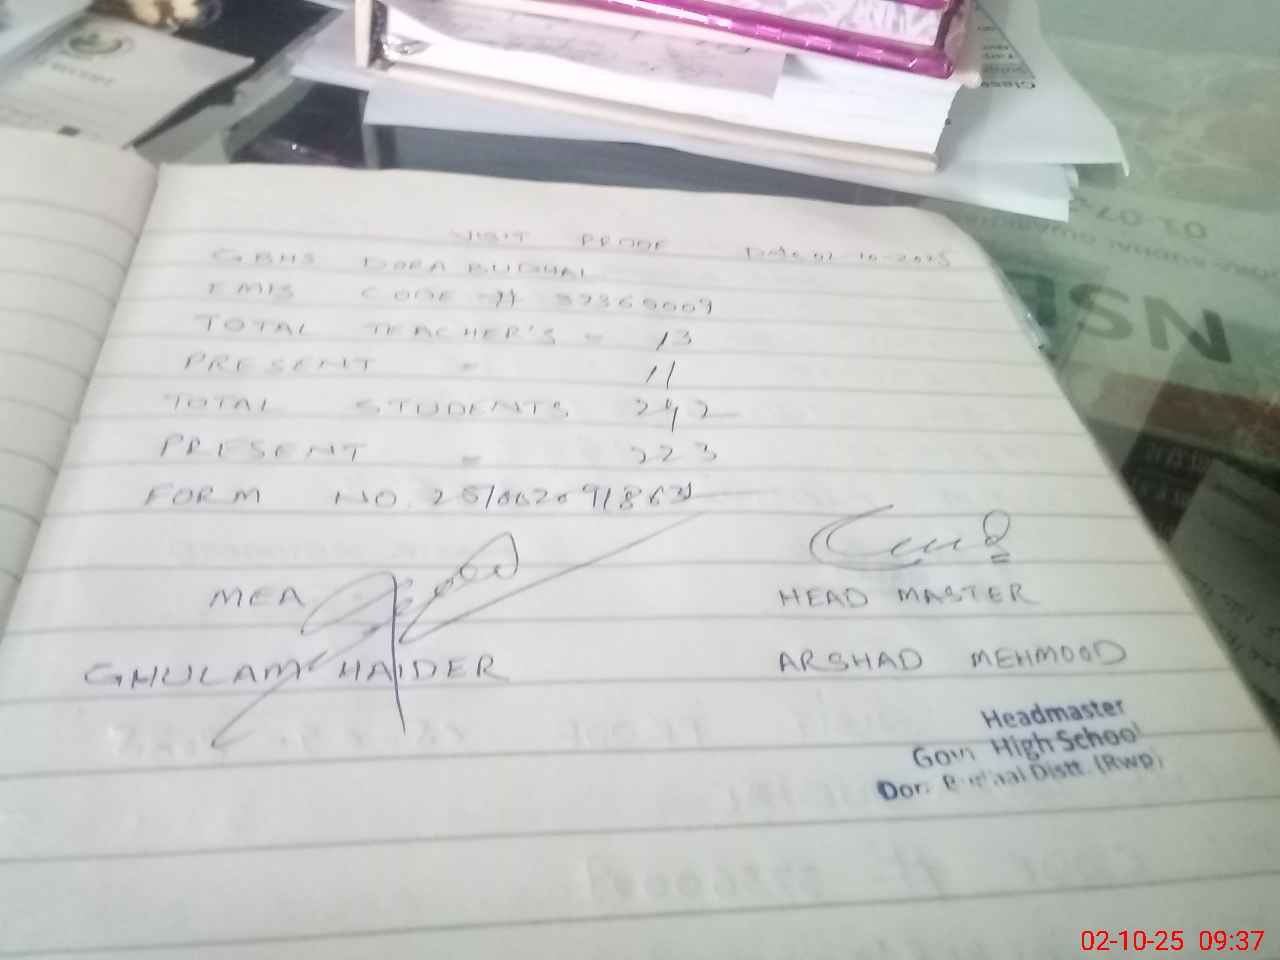 VISIT PROOF Date 02-10-2025
GBHS DORA BUDHAL
EMIS CODE # 37360009
TOTAL TEACHER'S = 13
PRESENT = 11
TOTAL STUDENTS 242
PRESENT = 223
FORM NO.
MEA
HEAD MASTER
GHULAM HAIDER
ARSHAD MEHMOOD
Headmaster
Govt High School
Distt. (Rwp)
NS
02-10-25 09:37